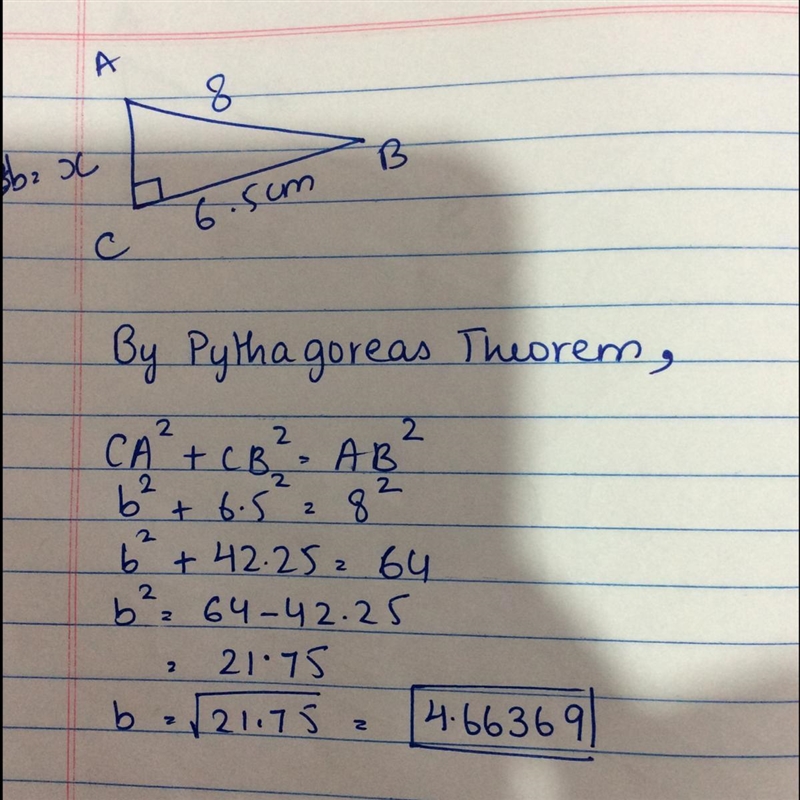 A
8
b= x
B
6.5cm
C
By Pythagoreas Theorem,
CA² + CB² = AB²
b² + 6.5² = 8²
b² + 42.25 = 64
b² = 64 - 42.25
= 21.75
b = √21.75 = 4.66369